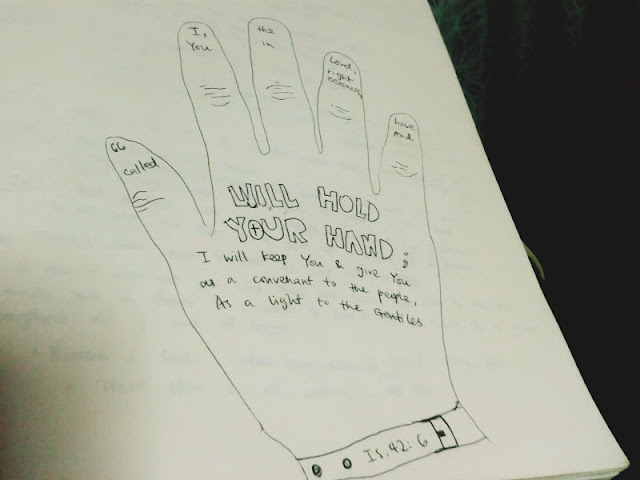 “
called
I,
You
the
in
Lord,
right
eousness,
have
And
WILL HOLD
YOUR HAND;
I will keep You & give You
as a convenant to the people,
As a light to the Gentiles
Is. 42:6